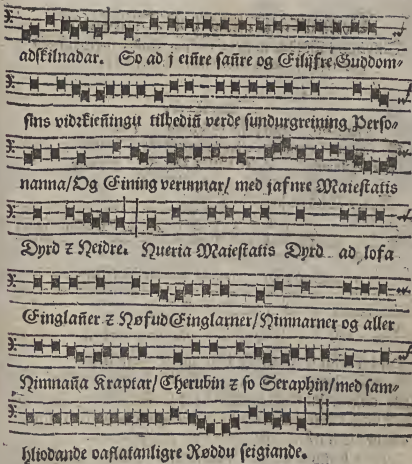 adskilnadar. So ad j eiñre sañre og Eilijfre Guddom-
sins vidrkieñingu tilbediñ verde sundurgreining Perso-
nanna/ Og Eining verunnar/ med jafnre Maiestatis
Dyrd ⁊ Heidre. Hueria Maiestatis Dyrd ad lofa
Einglañer ⁊ Høfud Einglarner/ Himnarner og aller
Himnaña Kraptar/ Cherubin ⁊ so Seraphin/ med sam-
hliodande oaflatanligre Røddu seigiande.